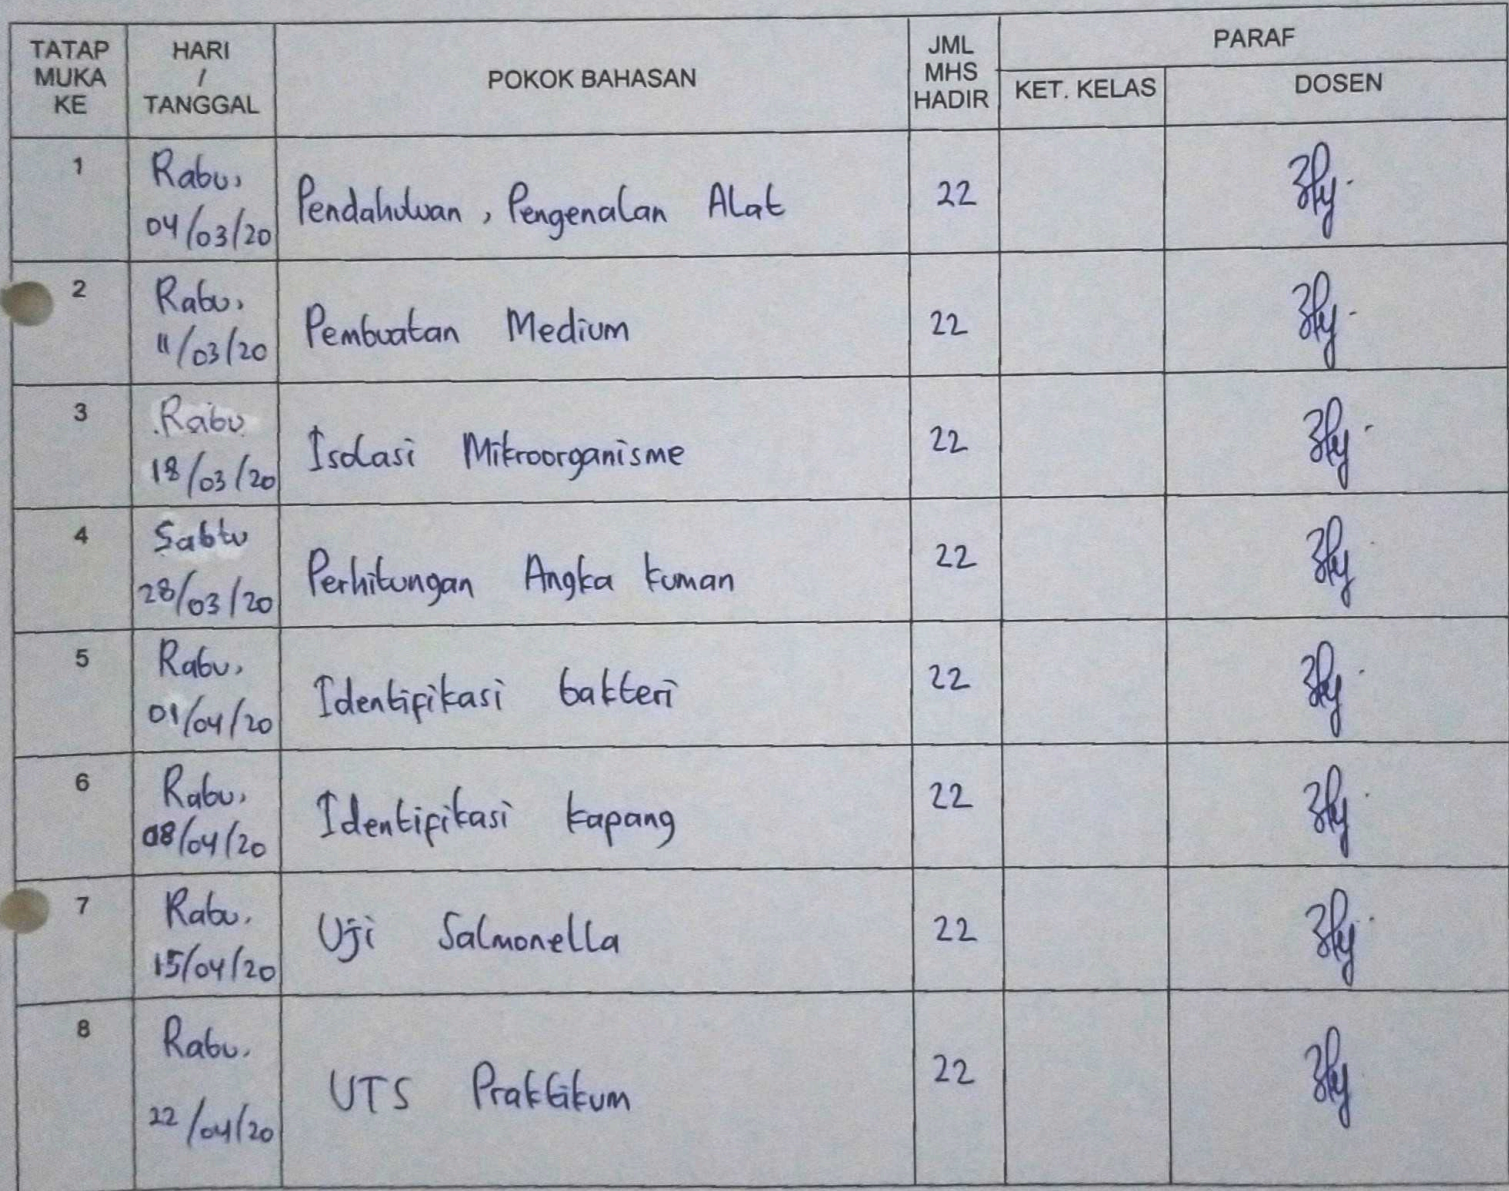 TATAP MUKA KE
HARI / TANGGAL
POKOK BAHASAN
JML MHS HADIR
PARAF
KET. KELAS
DOSEN
1
Rabu,
04/03/20
Pendahuluan, Pengenalan Alat
22
2
Rabu,
11/03/20
Pembuatan Medium
22
3
Rabu
18/03/20
Isolasi Mikroorganisme
22
4
Sabtu
28/03/20
Perhitungan Angka kuman
22
5
Rabu,
01/04/20
Identifikasi bakteri
22
6
Rabu,
08/04/20
Identifikasi kapang
22
7
Rabu,
15/04/20
Uji Salmonella
22
8
Rabu,
22/04/20
UTS Praktikum
22